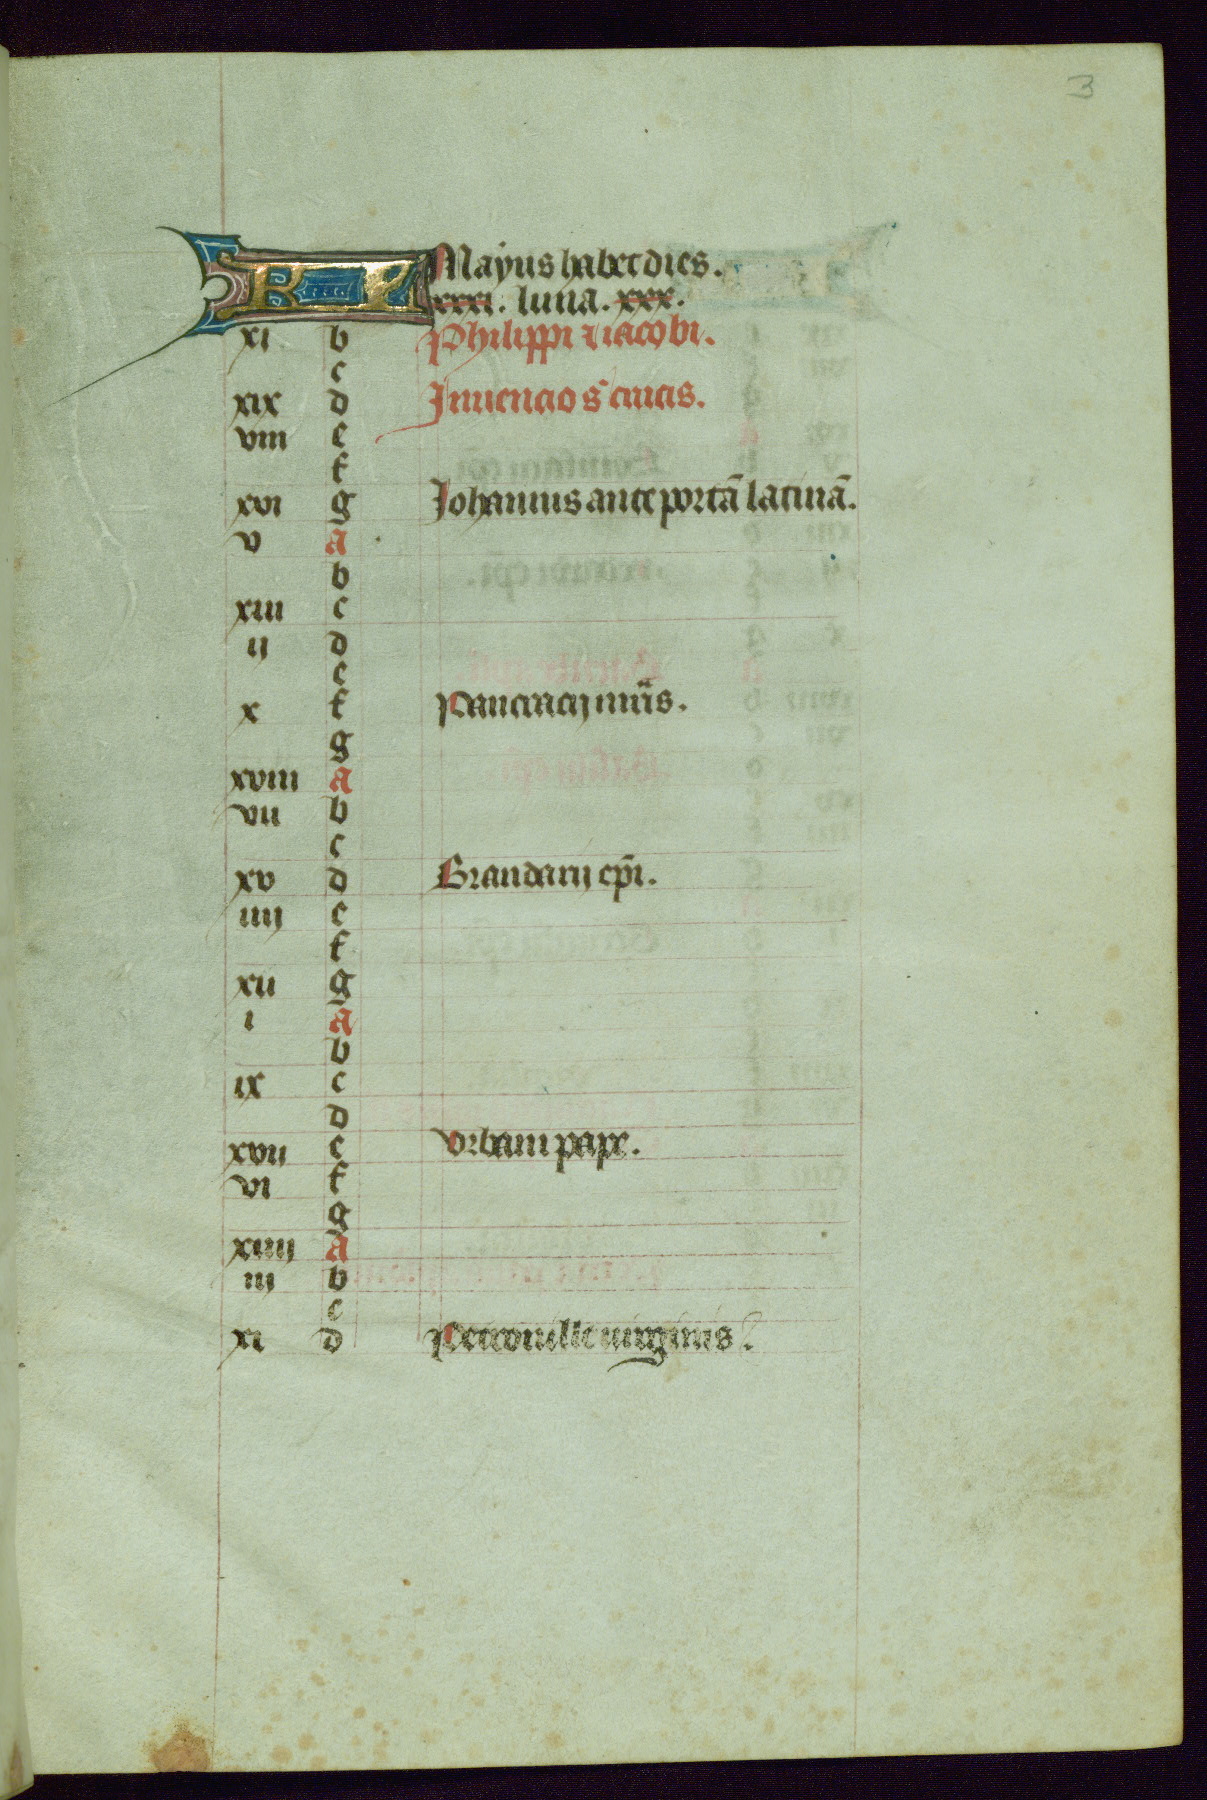 3
KL Mayus habet dies.
xxxi. luna. xxx.
xi b Philippi ⁊ iacobi.
c
xix d Inuencio s̄ crucis.
viii e
f
xvi g Iohannis ante portā latinā.
v a
b
xiii c
ij d
e
x f Pancracij mr̄is.
g
xviii a
vii b
c
xv d Brandarij ep̄i.
iiij e
f
xii g
i a
b
ix c
d
xvii e Vrbani pape.
vi f
g
xiiij a
iij b
c
xi d Petronille uirginis.